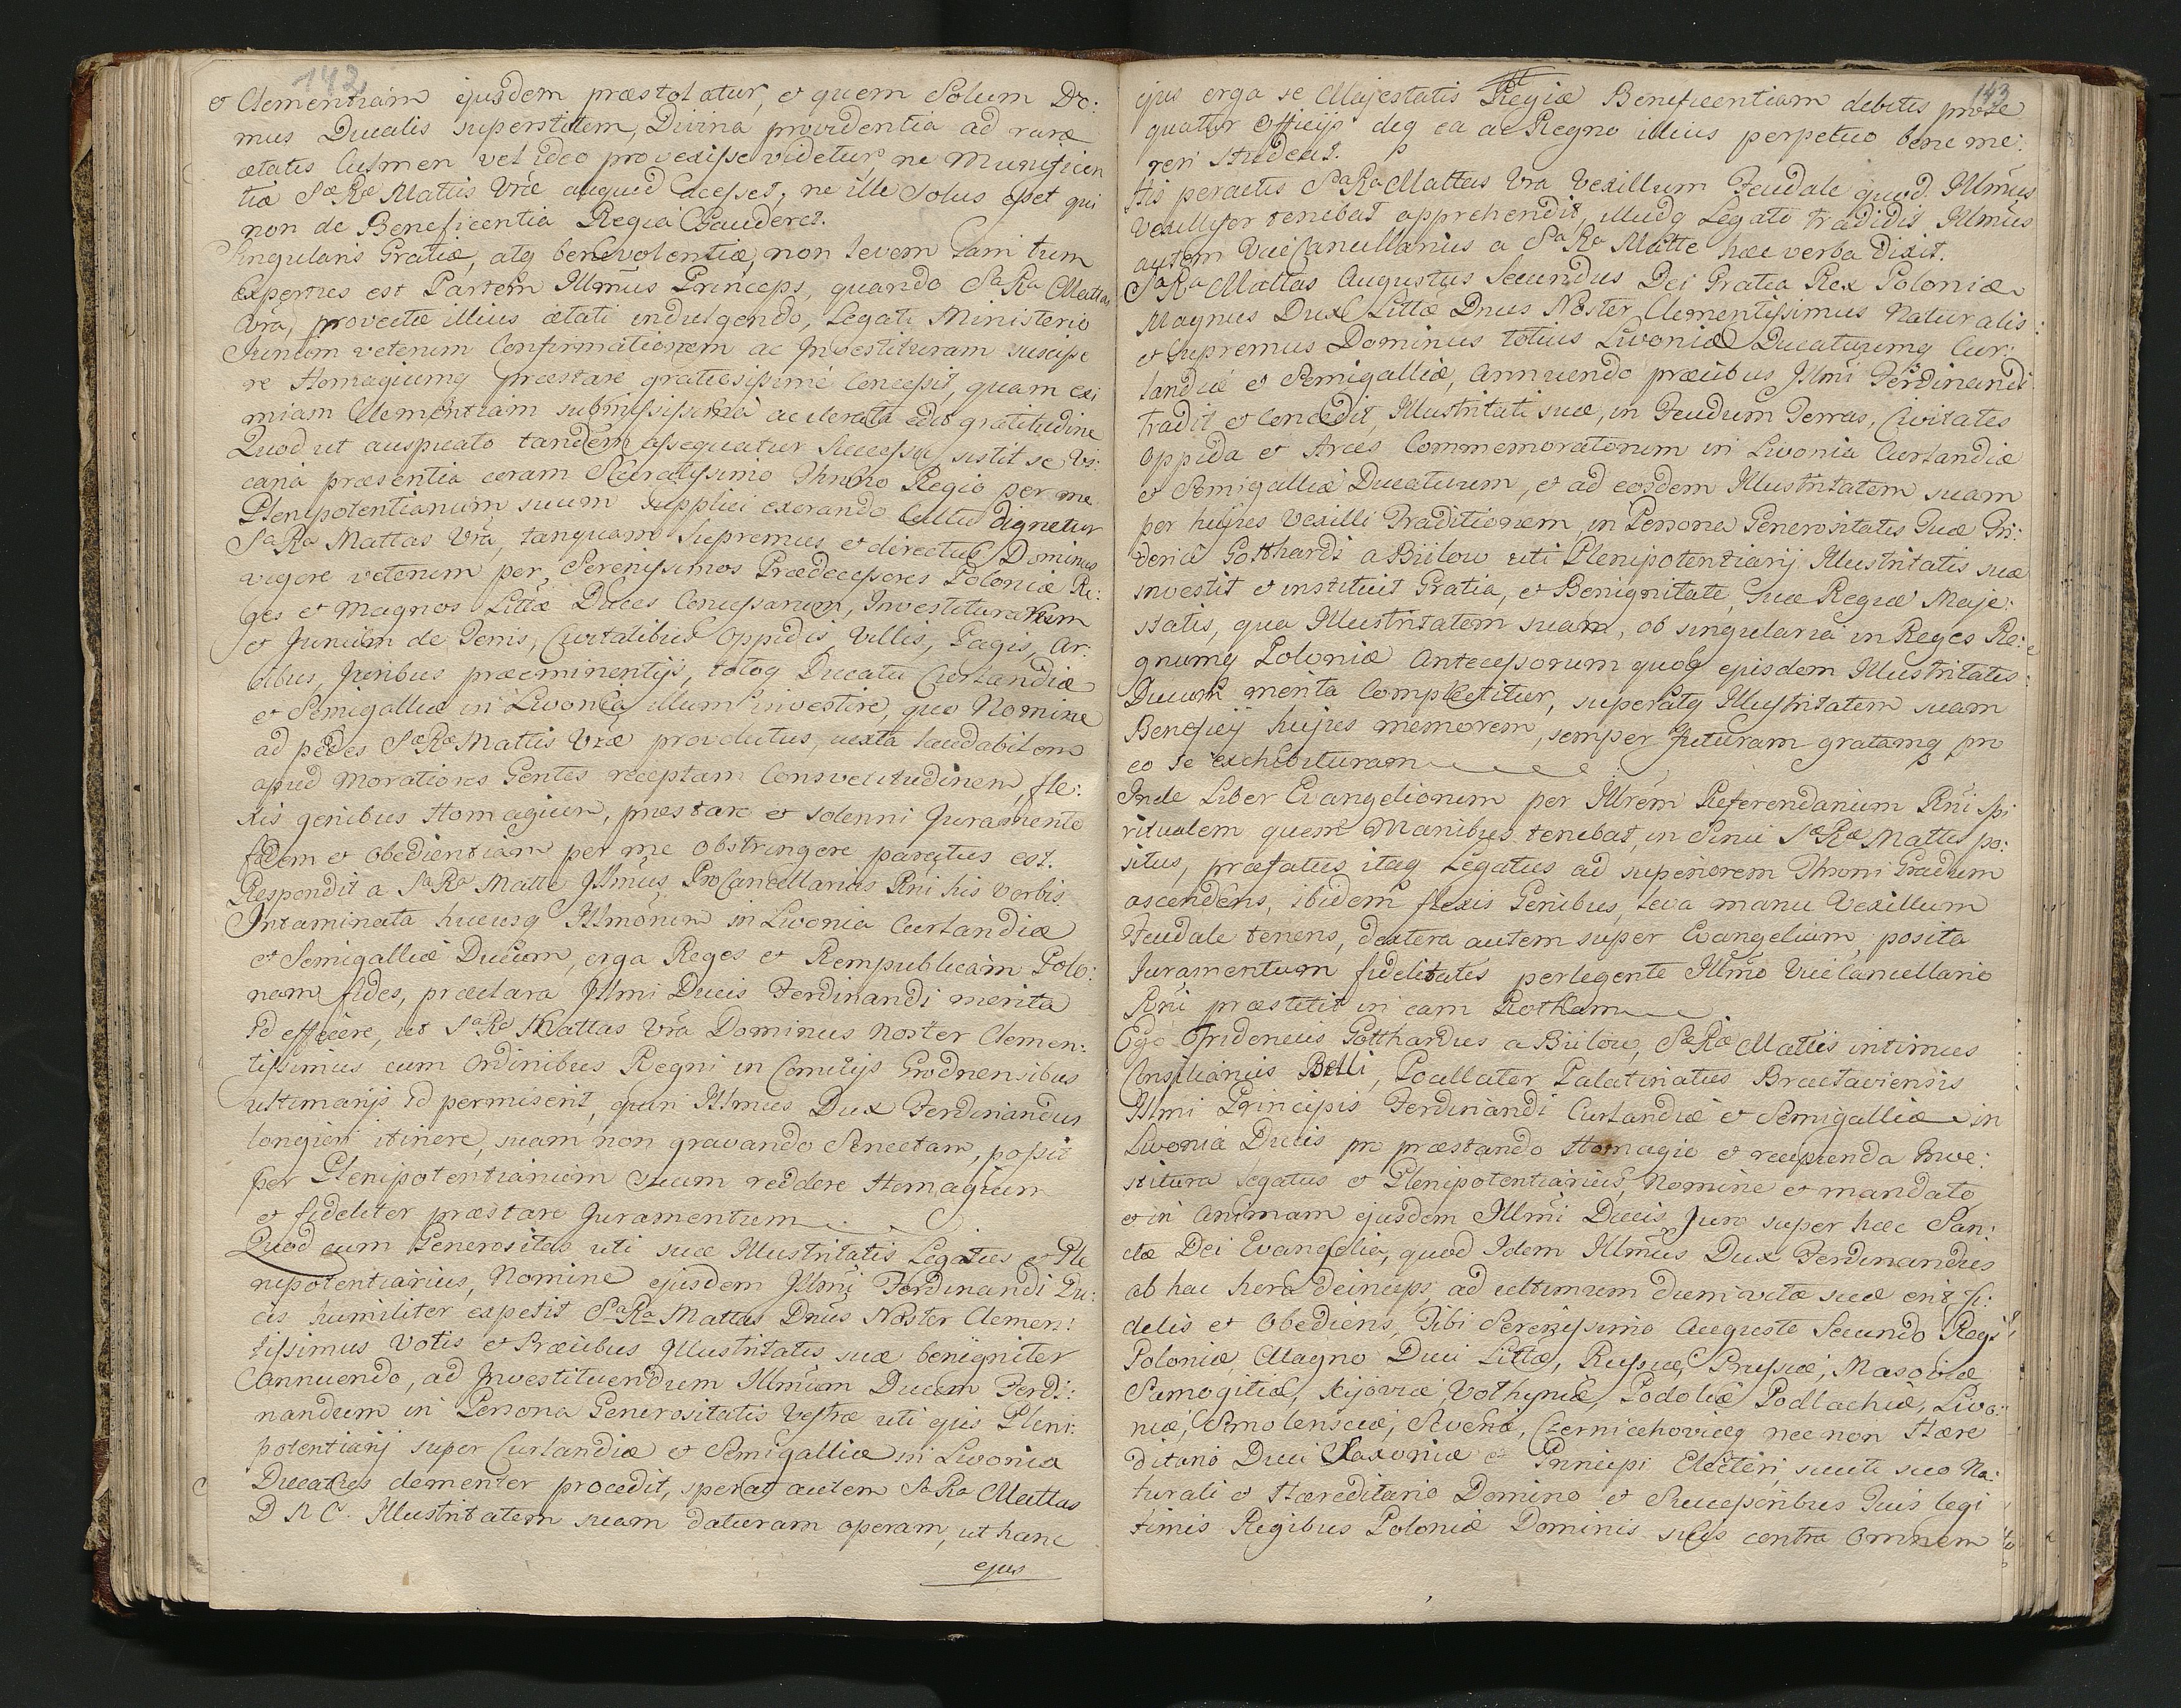 142
et Clementiam ejusdem præstolatur, et quem Solum Do:
mus Ducalis superstitem, Divina providentia ad raræ
ætatis Culmen vel ideo provexisse videtur, ne Munificen
tiæ Sæ Ræ Mattis Vræ aliquid decesset, ne ille Solus esset qui
non de Beneficentia Regia Gauderet.
Singularis Gratiæ, atq benevolentiæ, non levem jam tum
expertus est Partem Illmus Princeps, quando Sa Ra Mattas
Vra, provectæ illius ætati indulgendo, Legati Ministerio
Jurium veterum Confirmationem ac Investituram suscipe
re Homagiumq præstare gratiosissime Concessit, quam exi
miam Clementiam submississima ac
gratitudine
Quod ut auspicato tandem assequatur Successu sistit se Vi:
caria præsentia coram Sacratissimo Throno Regio per me
Plenipotentiarium suum supplici exorando Cultu dignetur
Sa Ra Mattas Vra, tanquam Supremus et directus Dominus
vigore veterum per Serenissimos Prædecessores Poloniæ Re:
ges et Magnos Littæ Duces Concessarum, Investiturarum
et Jurium de Terris, Civitatibus Oppidis, Villis, Pagis, Ar:
cibus, Juribus præeminentijs, totoq Ducatu Curlandiæ
et Semigalliæ in Livonia illum investire, quo Nomine
ad pedes Sæ Ræ Mattis Vræ provolutus, juxta laudabilem
apud Moratiores Gentes receptam Consvetudinem, fle:
xis genibus Homagium, præstare et solenni Juramento
fidem et Obedientiam per me obstringere paratus est.
Respondit a Sa Ra Matte Illmus ProCancellarius Rni his verbis
Intaminata hucusq Illmorum in Livonia Curlandiæ
et Semigalliæ Ducum, erga Reges et Rempublicam Polo:
nam fides, præclara Illmi Ducis Ferdinandi merita
id effecere, ut Sa Ra Mattas Vra Dominus Noster Clemen:
tissimus cum Ordinibus Regni in Comitijs Grodnensibus
ultimarijs id permiserit, quin Illmus Dux Ferdinandus
longiori itinere, suam non gravando Senectam, possit
per Plenipotentiarium Suum reddere Homagium
et fideliter præstare Juramentum
Quod cum Generositas uti suæ Illustritatis Legatus et Ple
nipotentiarius, Nomine ejusdem Illmi Ferdinandi Du:
cis humiliter expetit Sa Ra Mattas Dnus Noster Clemen:
tissimus Votis et Præcibus Illustritatis suæ benigniter
annuendo, ad Investituendum Illmum Ducem Ferdi:
nandum in Persona Generositatis Vestræ uti ejus Pleni:
potentiarij super Curlandiæ et Semigalliæ in Livonia
Ducatus clementer procedit, sperat autem Sa Ra Mattas
D N C. Illustritatem suam daturam operam, ut hanc
ejus
143
ejus erga se Majestatis Regiæ Beneficentiam debitis prose
quatur Officijs deq ea ac Regno illius perpetuo bene me:
reri studeat.
His peractis Sa Ra Mattas Vra Vexillum Feudale quod Illmus
Vexillifer tenebat apprehendit, illudq Legato tradidit Illmus
autem ViceCancellarius a Sa Ra Matte hæc verba Dixit.
Sa Ra Mattas Augustus Secundus Dei Gratia Rex Poloniæ
Magnus Dux Littæ Dnus Noster Clementissimus Naturalis
et Supremus Dominus totius Livoniæ Ducatuumq Cur:
landiæ et Semigalliæ, annuendo præcibus Illmi Ferdinandi
Tradit et Concedit, Illustritati suæ, in Feudum Terras, Civitates
Oppida et Arces Commemoratorum in Livonia Curlandiæ
et Semigalliæ Ducatuum, et ad eosdem Illustritatem suam
per hujus Vexilli Traditionem, in Persona Generositatis Suæ Fri:
derici Gotthardi a Bülow uti Plenipotentiarij Illustritatis suæ
investit et instituit Gratia, et Benignitate, Suæ Regiæ Maje:
statis, qua Illustritatem suam, ob singularia in Reges Re:
gnumq Poloniæ Antecessorum quoq ejusdem Illustritatis
Ducum merita Complectitur, speratq Illustritatem suam
Beneficij hujus memorem, semper futuram gratamq pro
eo se exchibituram
Inde Liber Evangeliorum per Illrem Referendarium Rni Spi
ritualem quem Manibus tenebat, in Sinu Sæ Ræ Mattis po:
situs, præfatus itaq Legatus ad superiorem Throni Gradum
ascendens, ibidem flexis Genibus, leva manu Vexillum
Feudale tenens, dextera autem super Evangelium posita
Juramentum fidelitatis perlegente Illmo ViceCancellario
Rni præstitit in eam Rotham
Ego Fridericus Gotthardus a Bülow, Sæ Ræ Mattis intimus
Consiliarius Belli, Pocillator Palatinatus Bractaviensis
Illmi Principis Ferdinandi Curlandiæ et Semigalliæ in
Livonia Ducis pro præstando Homagio et recipienda Inve:
stitura Legatus et Plenipotentiarius, Nomine et mandato
et in Animam ejusdem Illmi Ducis Juro super hæc San:
cta Dei Evangelia, quod Idem Illmus Dux Ferdinandus
ab hac hora deinceps ad ultimum diem vitæ suæ erit fi:
delis et Obediens, Tibi Serenissimo Augusto Secundo Regi
Poloniæ, Magno Duci Littæ, Russiæ, Prussiæ, Masoviæ
Samogitiæ, Kijoviæ, Volhyniæ, Podoliæ Podlachiæ, Livo:
niæ, Smolensciæ, Severiæ, Czernicchoviæq nec non Hære
ditario Duci Saxoniæ et Principi Electori, sicuti suo Na:
turali et Hæreditario Domino et Successoribus Tuis legi
timis Regibus Poloniæ Dominis suis contra Omnem